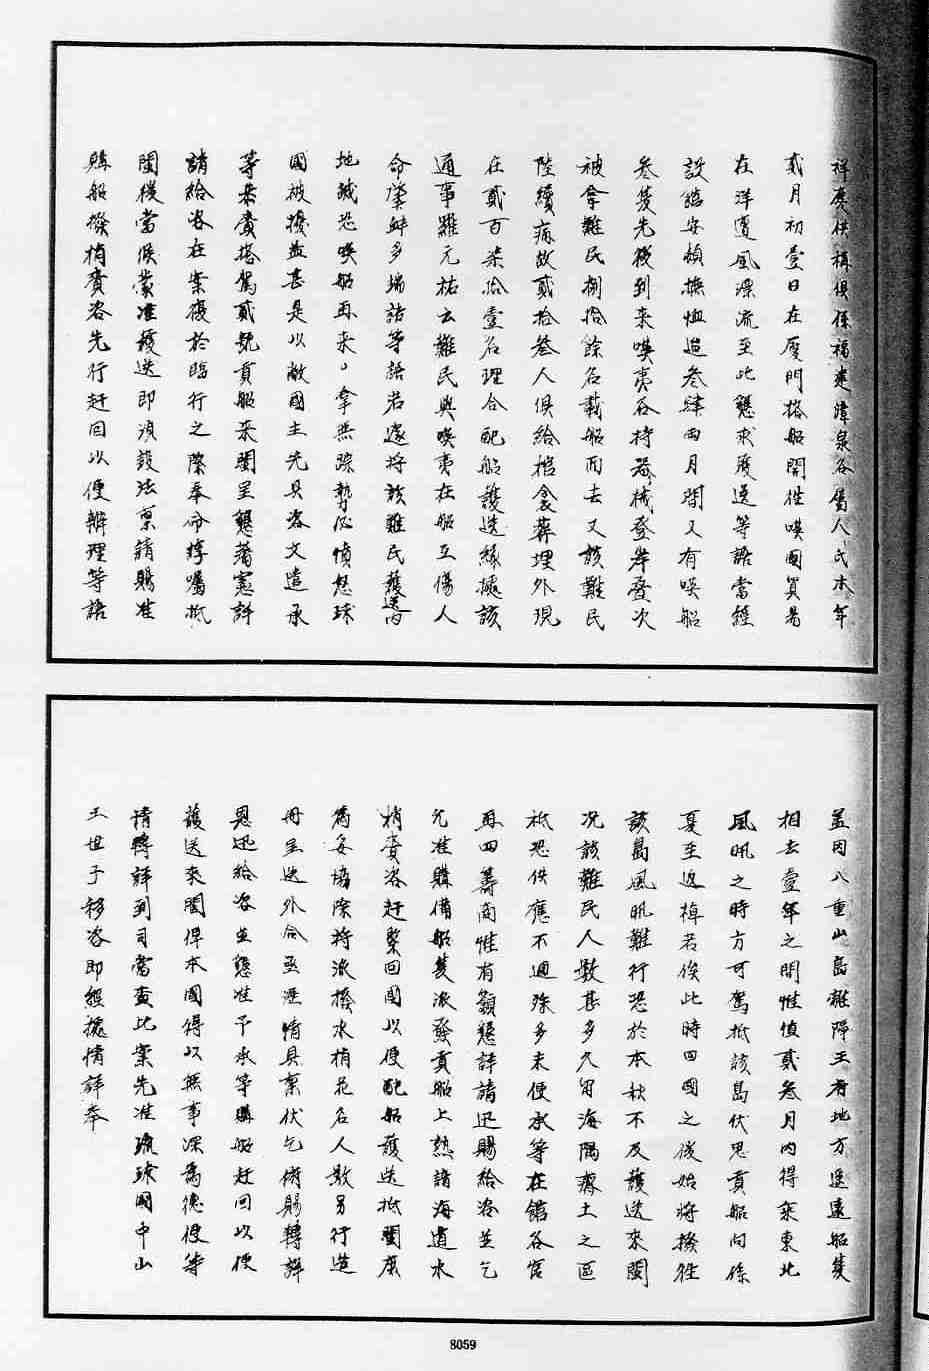 祥慶供稱俱係福建漳泉各屬人民本年
貳月初壹日在厦門搭船開往㗸國貿易
在洋遭風漂流至此懇求度送等語當經
設舘安頓撫恤迨叁肆兩月間又有㗸船
叁隻先後到來㗸夷各持器械登岸疊次
被拿難民捌拾餘名載船而去又該難民
陸續病故貳拾叁人俱給棺衾葬埋外現
在貳百柒拾壹名理合配船護送緣據該
通事羅元祐云難民與㗸夷在船互傷人
命肇衅多端詰等語若遽將該難民護送內
地誠恐㗸船再來拿無踪勢必憤怒球
國被擾益甚是以敝國主先具咨文遣承
等恭賫搭駕貳號貢船來閩呈懇藩憲詳
請給咨在案復於臨行之際奉命諄囑抵
閩後當候蒙准護送即湏設法禀請賜准
購船撥梢賫咨先行赶回以便辦理等語
盖因八重山島離隔王府地方遥遠船隻
相去壹年之間惟值貳叁月內得乘東北
風帆之時方可駕抵該島伏思貢船向係
夏至返棹若俟此時回國之後始將撥往
該島風帆難行恐於本秋不及護送來閩
况該難民人數甚多久留海隅瘠土之區
祇恐供應不週殊多未便承等在舘各官
再四籌商惟有籲懇詳請迅賜給咨並乞
允准購備船隻派發貢船上熟諳海道水
梢賫咨赶緊回國以便配船護送抵閩庶
爲妥協除將派撥水梢花名人數另行造
冊呈送外合亟瀝情具禀伏乞俯賜轉詳
恩迅給咨並懇准予承等購船赶回以便
護送來閩俾本國得以無事深爲德便等
情轉詳到司當查此案先准琉球國中山
王世子移咨即經據情詳奉
8059